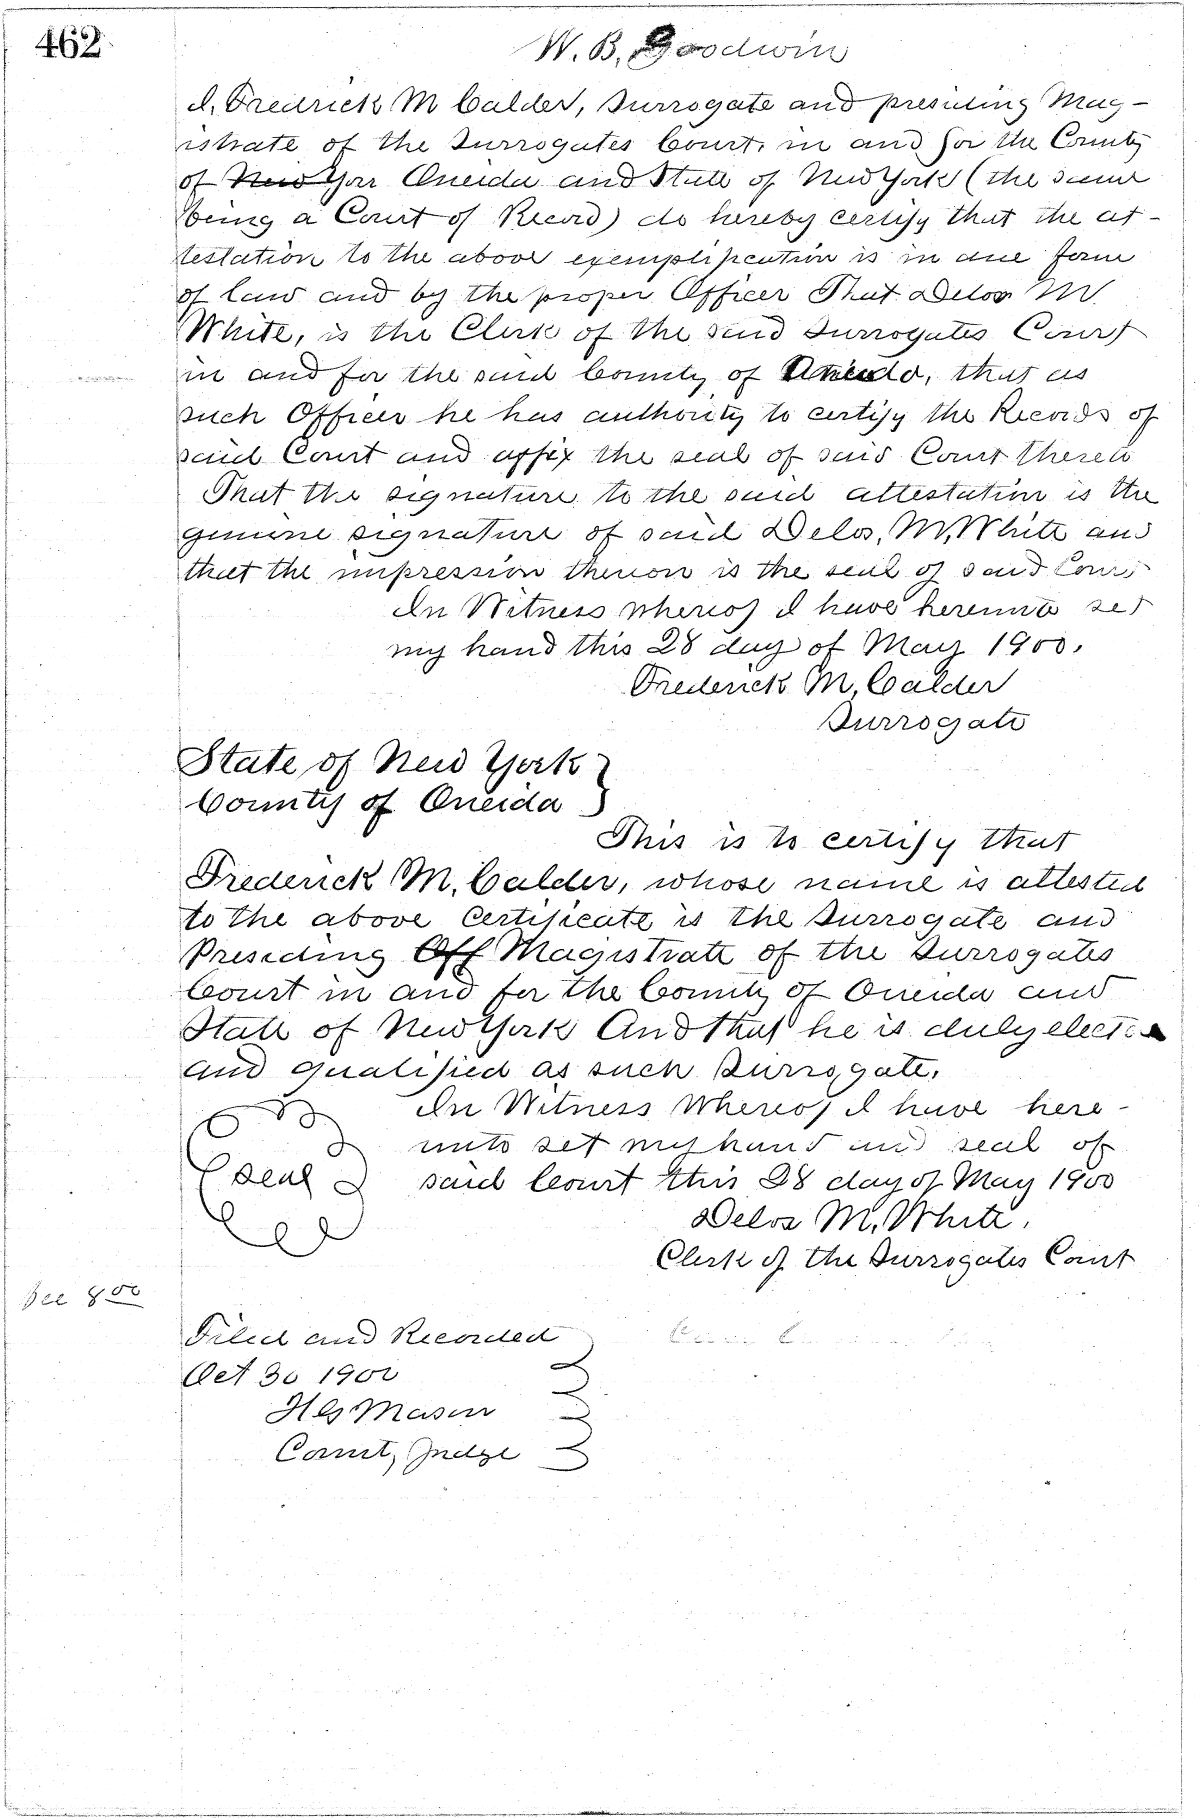 462
W. B. Goodwin
I, Fredrick M Calder, Surrogate and presiding Mag-
istrate of the Surrogates Court, in and for the County
of New Yor Oneida and State of New York (the same
being a Court of Record) do hereby certify that the at-
testation to the above exemplification is in due form
of law and by the proper Officer That Delos M.
White, is the Clerk of the said Surrogates Court
in and for the said County of Oneida, that as
such Officer he has authority to certify the Records of
said Court and affix the seal of said Court thereto
That the signature to the said attestation is the
genuine signature of said Delos, M, White and
that the impression thereon is the seal of said Court
In Witness whereof I have hereunto set
my hand this 28 day of May 1900.
Frederick M, Calder
Surrogate
State of New York }
County of Oneida }
This is to certify that
Frederick M, Calder, whose name is attested
to the above certificate is the Surrogate and
Presiding Off Magistrate of the Surrogates
Court in and for the County of Oneida and
State of New York And that he is duly elected
and qualified as such Surrogate.
In Witness Whereof I have here-
unto set my hand and seal of
seal
said Court this 28 day of May 1900
Delos M. White.
Clerk of the Surrogates Court
Fee 8 00
Filed and Recorded
Oct 30 1900
H G Mason
County Judge